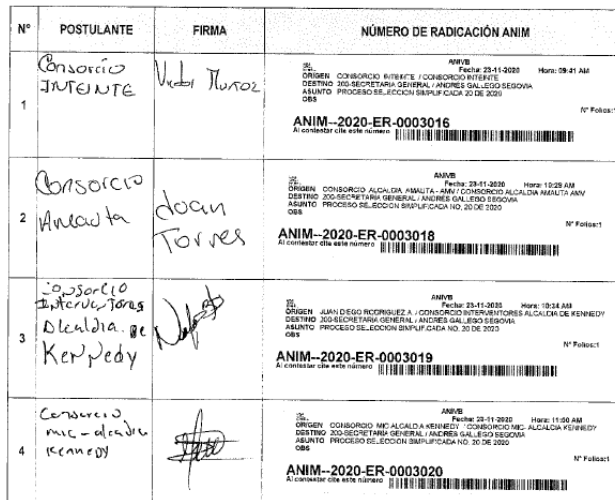 Nº POSTULANTE FIRMA NÚMERO DE RADICACIÓN ANIM
1
Consorcio
INTEINTE
Victor Muñoz
ANIVB
Fecha: 23-11-2020 Hora: 09:41 AM
ORIGEN CONSORCIO INTEINTE / CONSORCIO INTEINTE
DESTINO 200-SECRETARIA GENERAL / ANDRÉS GALLEGO SEGOVIA
ASUNTO PROCESO SELECCION SIMPLIFICADA 20 DE 2020
OBS
Nº Folios:1
ANIM--2020-ER-0003016
Al contestar cite este número
2
Consorcio
Amauta
Joan
Torres
ANIVB
Fecha: 23-11-2020 Hora: 10:29 AM
ORIGEN CONSORCIO ALCALDIA AMAUTA - AMV / CONSORCIO ALCALDIA AMAUTA AMV
DESTINO 200-SECRETARIA GENERAL / ANDRÉS GALLEGO SEGOVIA
ASUNTO PROCESO SELECCION SIMPLIFICADA NO. 20 DE 2020
OBS
Nº Folios:1
ANIM--2020-ER-0003018
Al contestar cite este número
3
Consorcio
Interventores
Alcaldia de
Kennedy
ANIVB
Fecha: 23-11-2020 Hora: 10:34 AM
ORIGEN JUAN DIEGO RODRIGUEZ A / CONSORCIO INTERVENTORES ALCALDIA DE KENNEDY
DESTINO 200-SECRETARIA GENERAL / ANDRÉS GALLEGO SEGOVIA
ASUNTO PROCESO SELECCION SIMPLIFICADA NO. 20 DE 2020
OBS
Nº Folios:1
ANIM--2020-ER-0003019
Al contestar cite este número
4
Consorcio
mic-alcadia
Kennedy
ANIVB
Fecha: 23-11-2020 Hora: 11:00 AM
ORIGEN CONSORCIO MIC ALCALDIA KENNEDY / CONSORCIO MIC- ALCALDIA KENNEDY
DESTINO 200-SECRETARIA GENERAL / ANDRÉS GALLEGO SEGOVIA
ASUNTO PROCESO SELECCION SIMPLIFICADA NO. 20 DE 2020
OBS
Nº Folios:1
ANIM--2020-ER-0003020
Al contestar cite este número